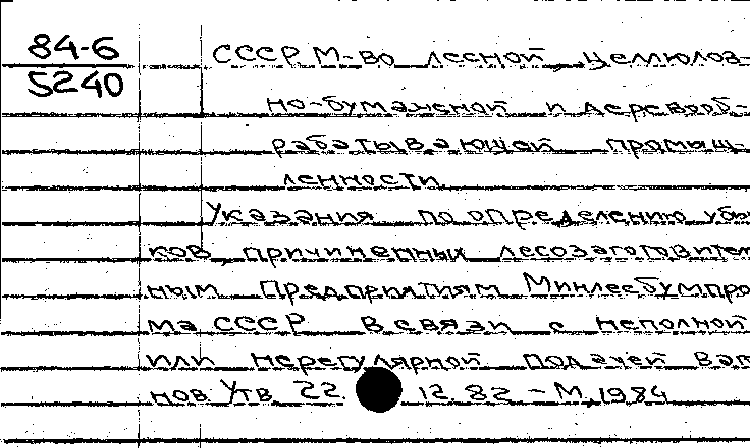 84-6 СССР М-во лесной, целлюлоз-
5240
но-бумажной и деревооб-
рабатывающей промыш-
ленности
Указания по определению убы
ков, причиненных лесозаготовител
ным предприятиям Минлесбумпро
ма СССР в связи с неполной
или нерегулярной подачей ваг
нов. Утв. 22. 12. 82 - М, 1984